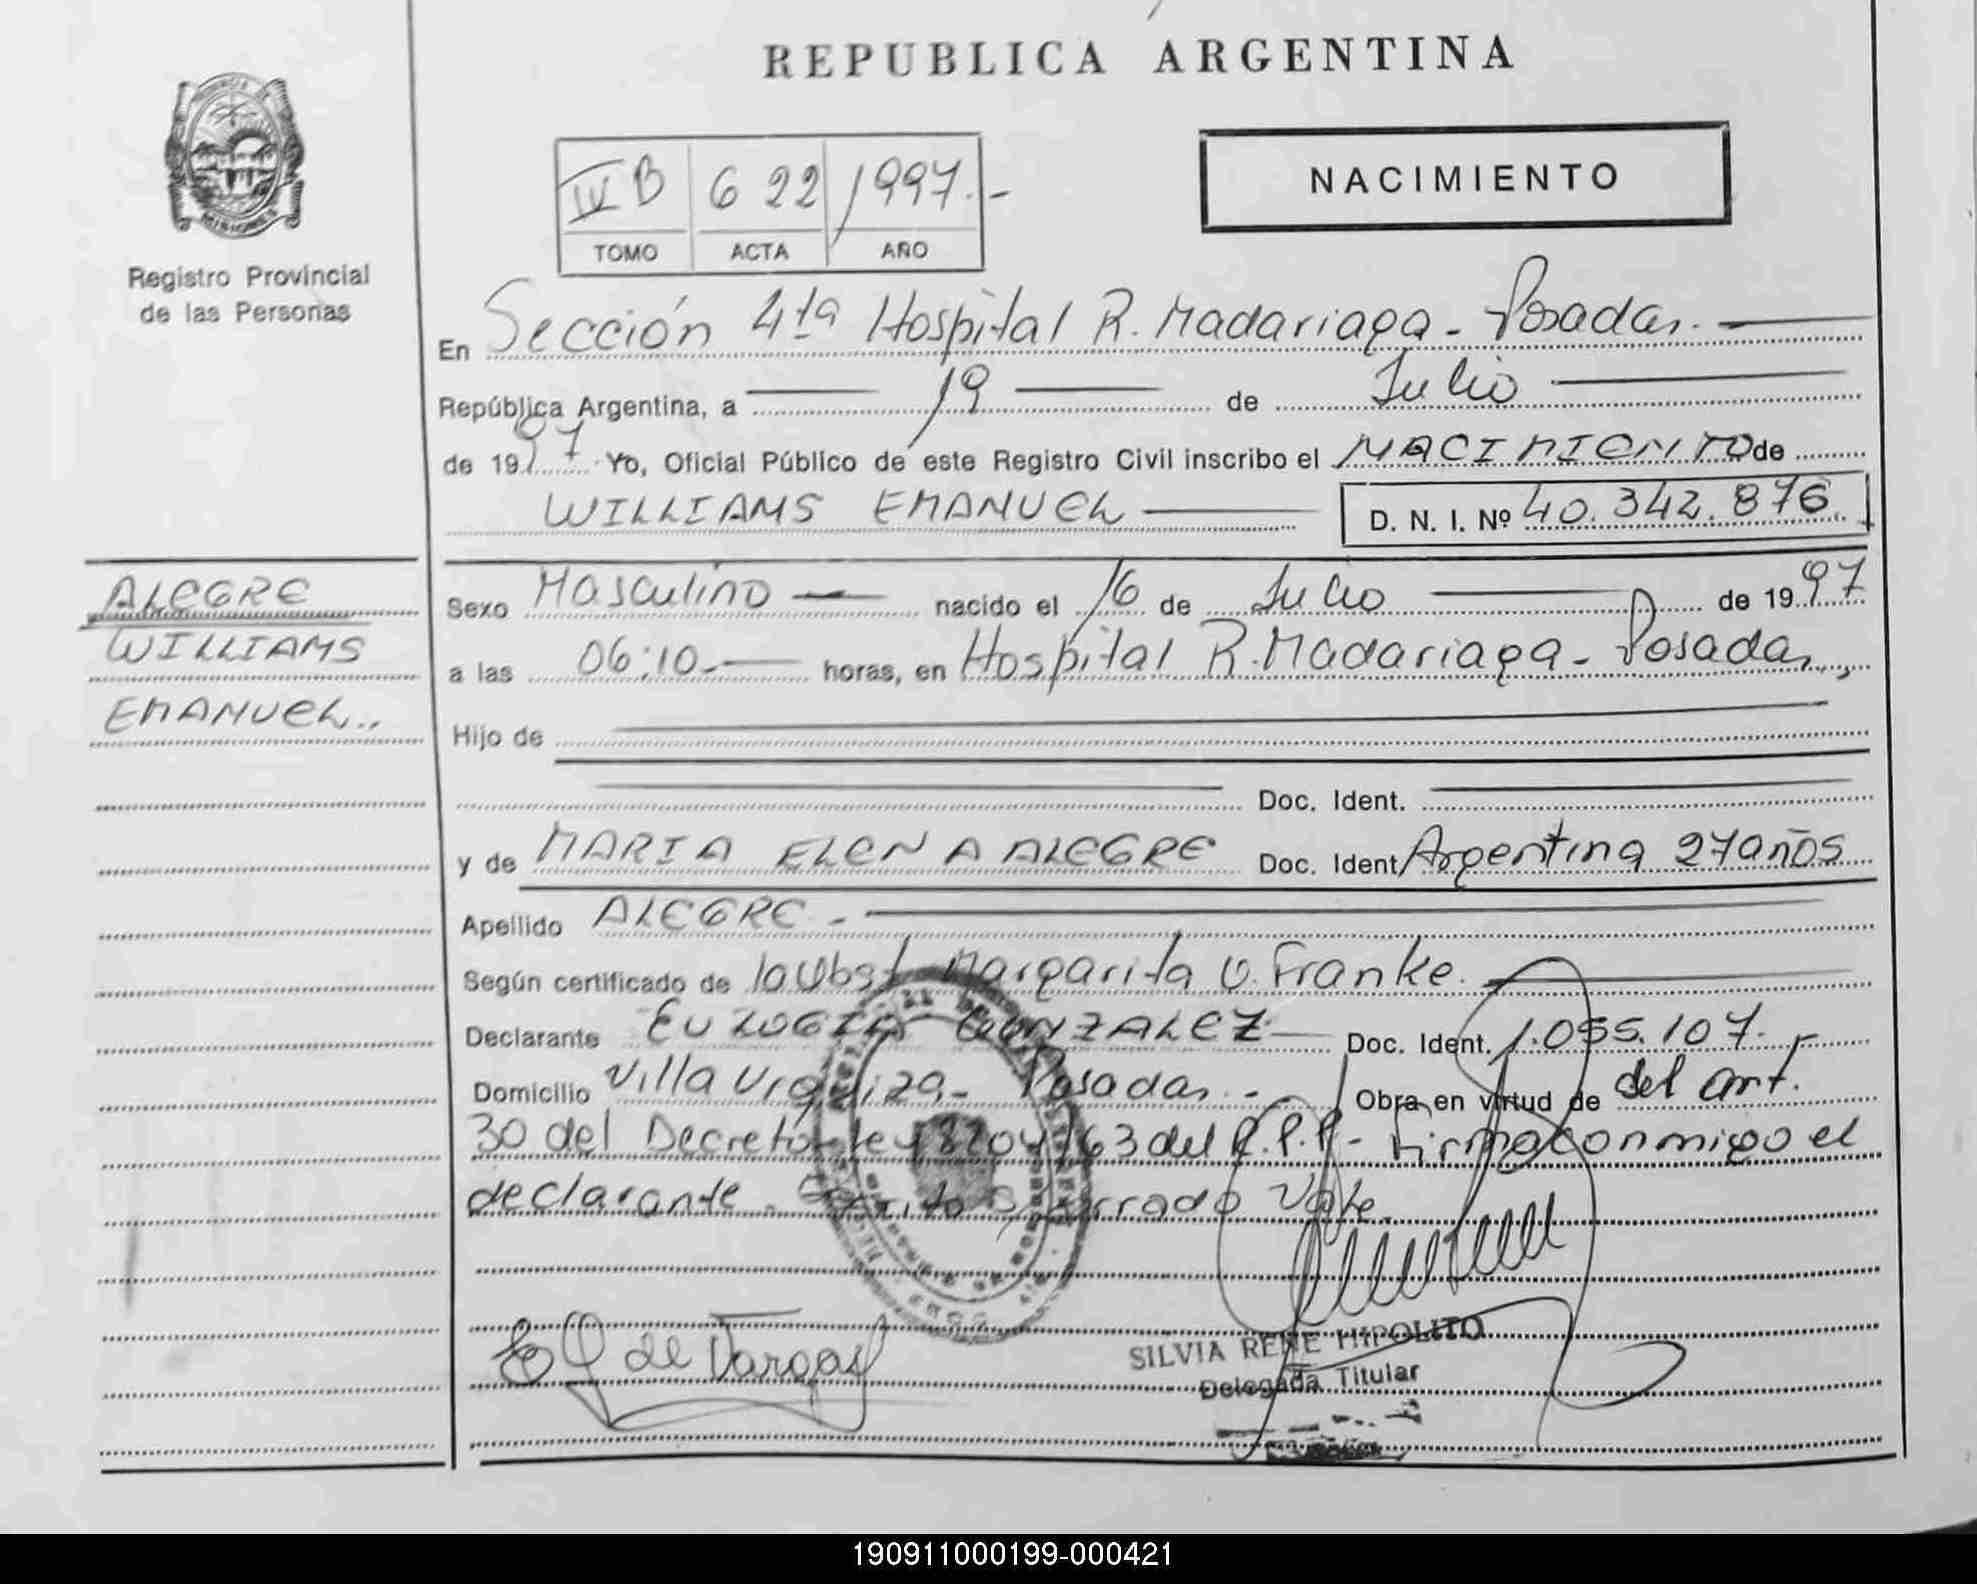 REPUBLICA ARGENTINA
PROVINCIA DE
MISIONES
Registro Provincial
de las Personas
IV B 622 1997.-
TOMO ACTA AÑO
NACIMIENTO
En Sección 4ta Hospital R. Madariaga - Posadas.
República Argentina, a 19 de Julio
de 1997 Yo, Oficial Público de este Registro Civil inscribo el NACIMIENTO de
WILLIAMS EMANUEL D. N. I. Nº 40.342.876.
ALEGRE
WILLIAMS
EMANUEL..
Sexo Masculino nacido el 16 de Julio de 1997
a las 06:10.- horas, en Hospital R. Madariaga - Posadas,
Hijo de
Doc. Ident.
y de MARIA ELENA ALEGRE Doc. Ident. Argentina 27 años
Apellido ALEGRE -
Según certificado de la Obst Margarita V. Franke.
Declarante EULOGIA GONZALEZ Doc. Ident. 1.055.107.-
Domicilio Villa Urquiza - Posadas. - Obra en virtud de del art.
30 del Decreto-ley 8204/63 del R.P.P - Firma conmigo el
declarante. Escrito S/ borrado Vale.
de Vargas
SILVIA RENE HIPOLITO
Delegada Titular
190911000199-000421